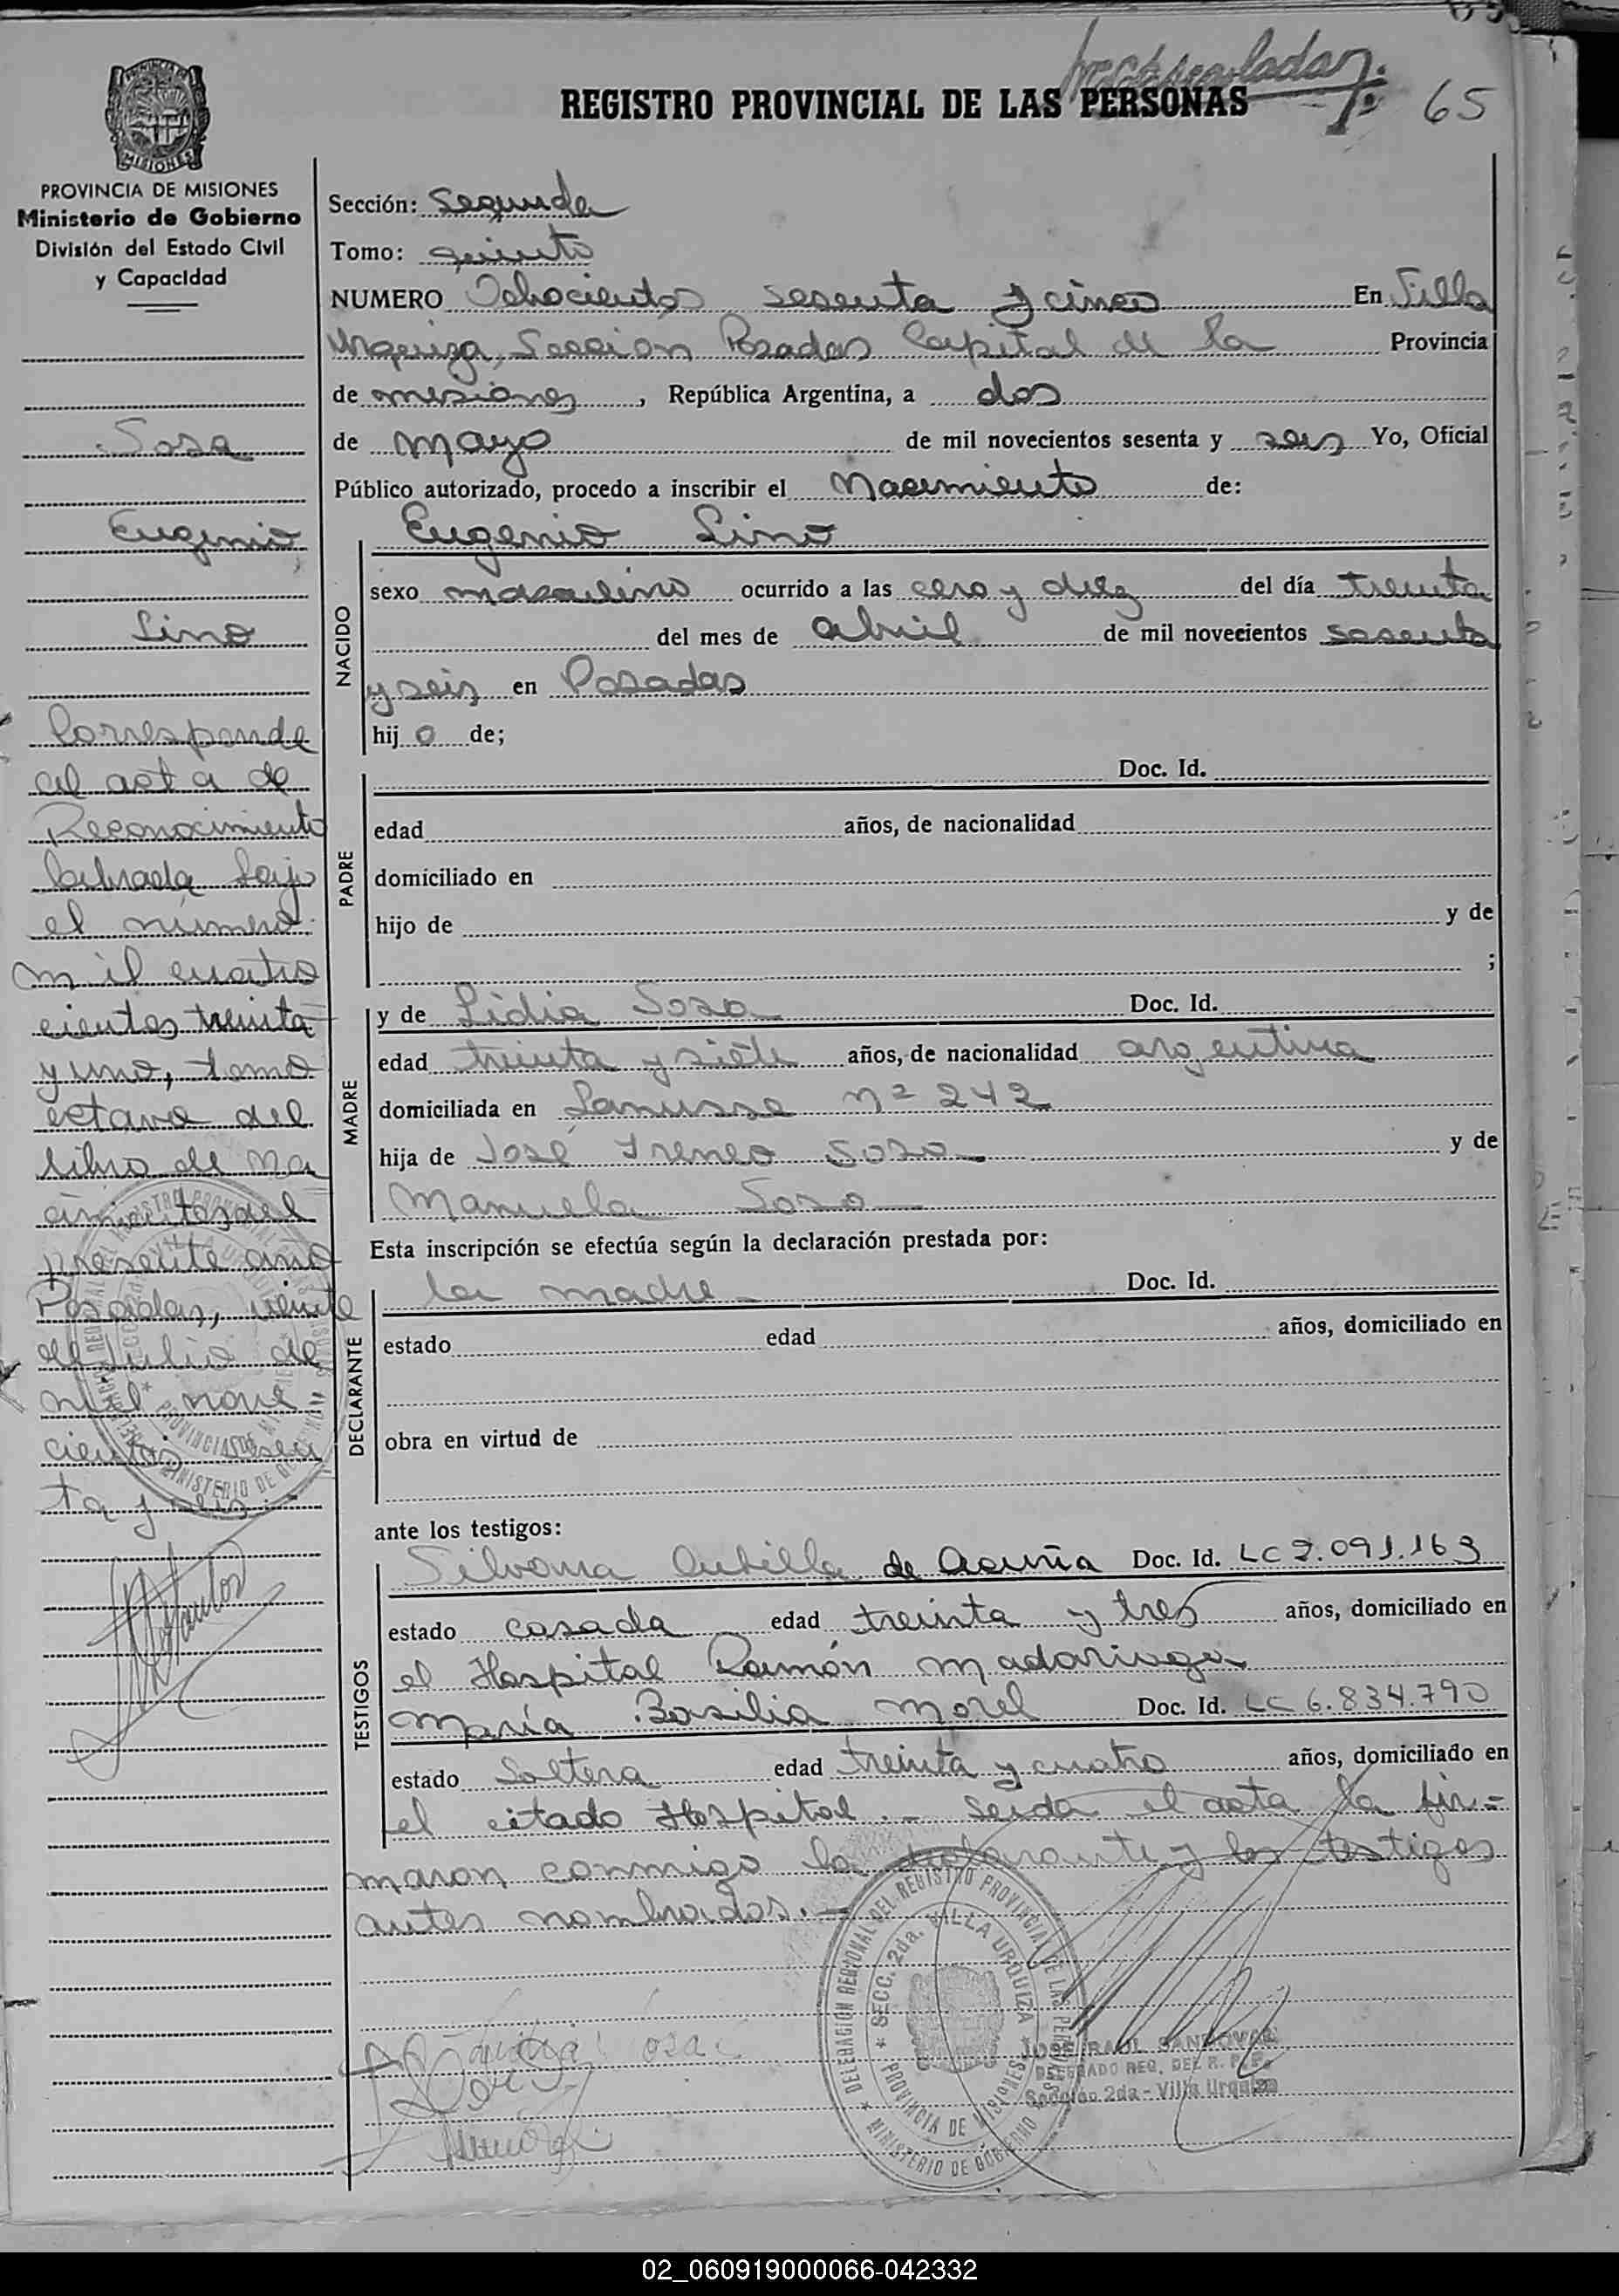 REGISTRO PROVINCIAL DE LAS PERSONAS
65
PROVINCIA DE MISIONES
Ministerio de Gobierno
División del Estado Civil
y Capacidad
Sosa
Eugenio
Lino
Corresponde
al acta de
Reconocimiento
labrada bajo
el número
mil cuatro
cientos treinta
y uno, tomo
octavo del
libro de na
cimientos del
presente año
Posadas, veinte
de Julio de
mil nove
cientos sesen
ta y seis.-
Sección: Segunda
Tomo: quinto
NUMERO Ochocientos sesenta y cinco En Villa
Urquiza, Sección Posadas Capital de la Provincia
de misiones, República Argentina, a dos
de mayo de mil novecientos sesenta y seis Yo, Oficial
Público autorizado, procedo a inscribir el Nacimiento de:
NACIDO
Eugenio Lino
sexo masculino ocurrido a las cero y diez del día treinta
del mes de abril de mil novecientos sesenta
y seis en Posadas
hijo de;
PADRE
Doc. Id.
edad años, de nacionalidad
domiciliado en
hijo de y de
;
MADRE
y de Lidia Sosa Doc. Id.
edad treinta y siete años, de nacionalidad argentina
domiciliada en Lanusse nº 242
hija de José Ireneo Sosa y de
Manuela Sosa
Esta inscripción se efectúa según la declaración prestada por:
DECLARANTE
la madre Doc. Id.
estado edad años, domiciliado en
obra en virtud de
ante los testigos:
TESTIGOS
Silvana Cubilla de Acuña Doc. Id. LC 2.091.163
estado casada edad treinta y tres años, domiciliado en
el Hospital Ramón madariaga
María Basilia Morel Doc. Id. LC 6.834.790
estado Soltera edad treinta y cuatro años, domiciliado en
el citado Hospital.- Leida el acta la fir=
maron conmigo la declarante y los testigos
antes nombrados.-
DELEGACIÓN REGIONAL DEL REGISTRO PROVINCIAL DE LAS PERSONAS
SECC. 2da. VILLA URQUIZA
PROVINCIA DE MISIONES
MINISTERIO DE GOBIERNO
JOSE RAUL SANDOVAL
DELEGADO REG. DEL R. P. P.
Sección 2da - Villa Urquiza
02_060919000066-042332